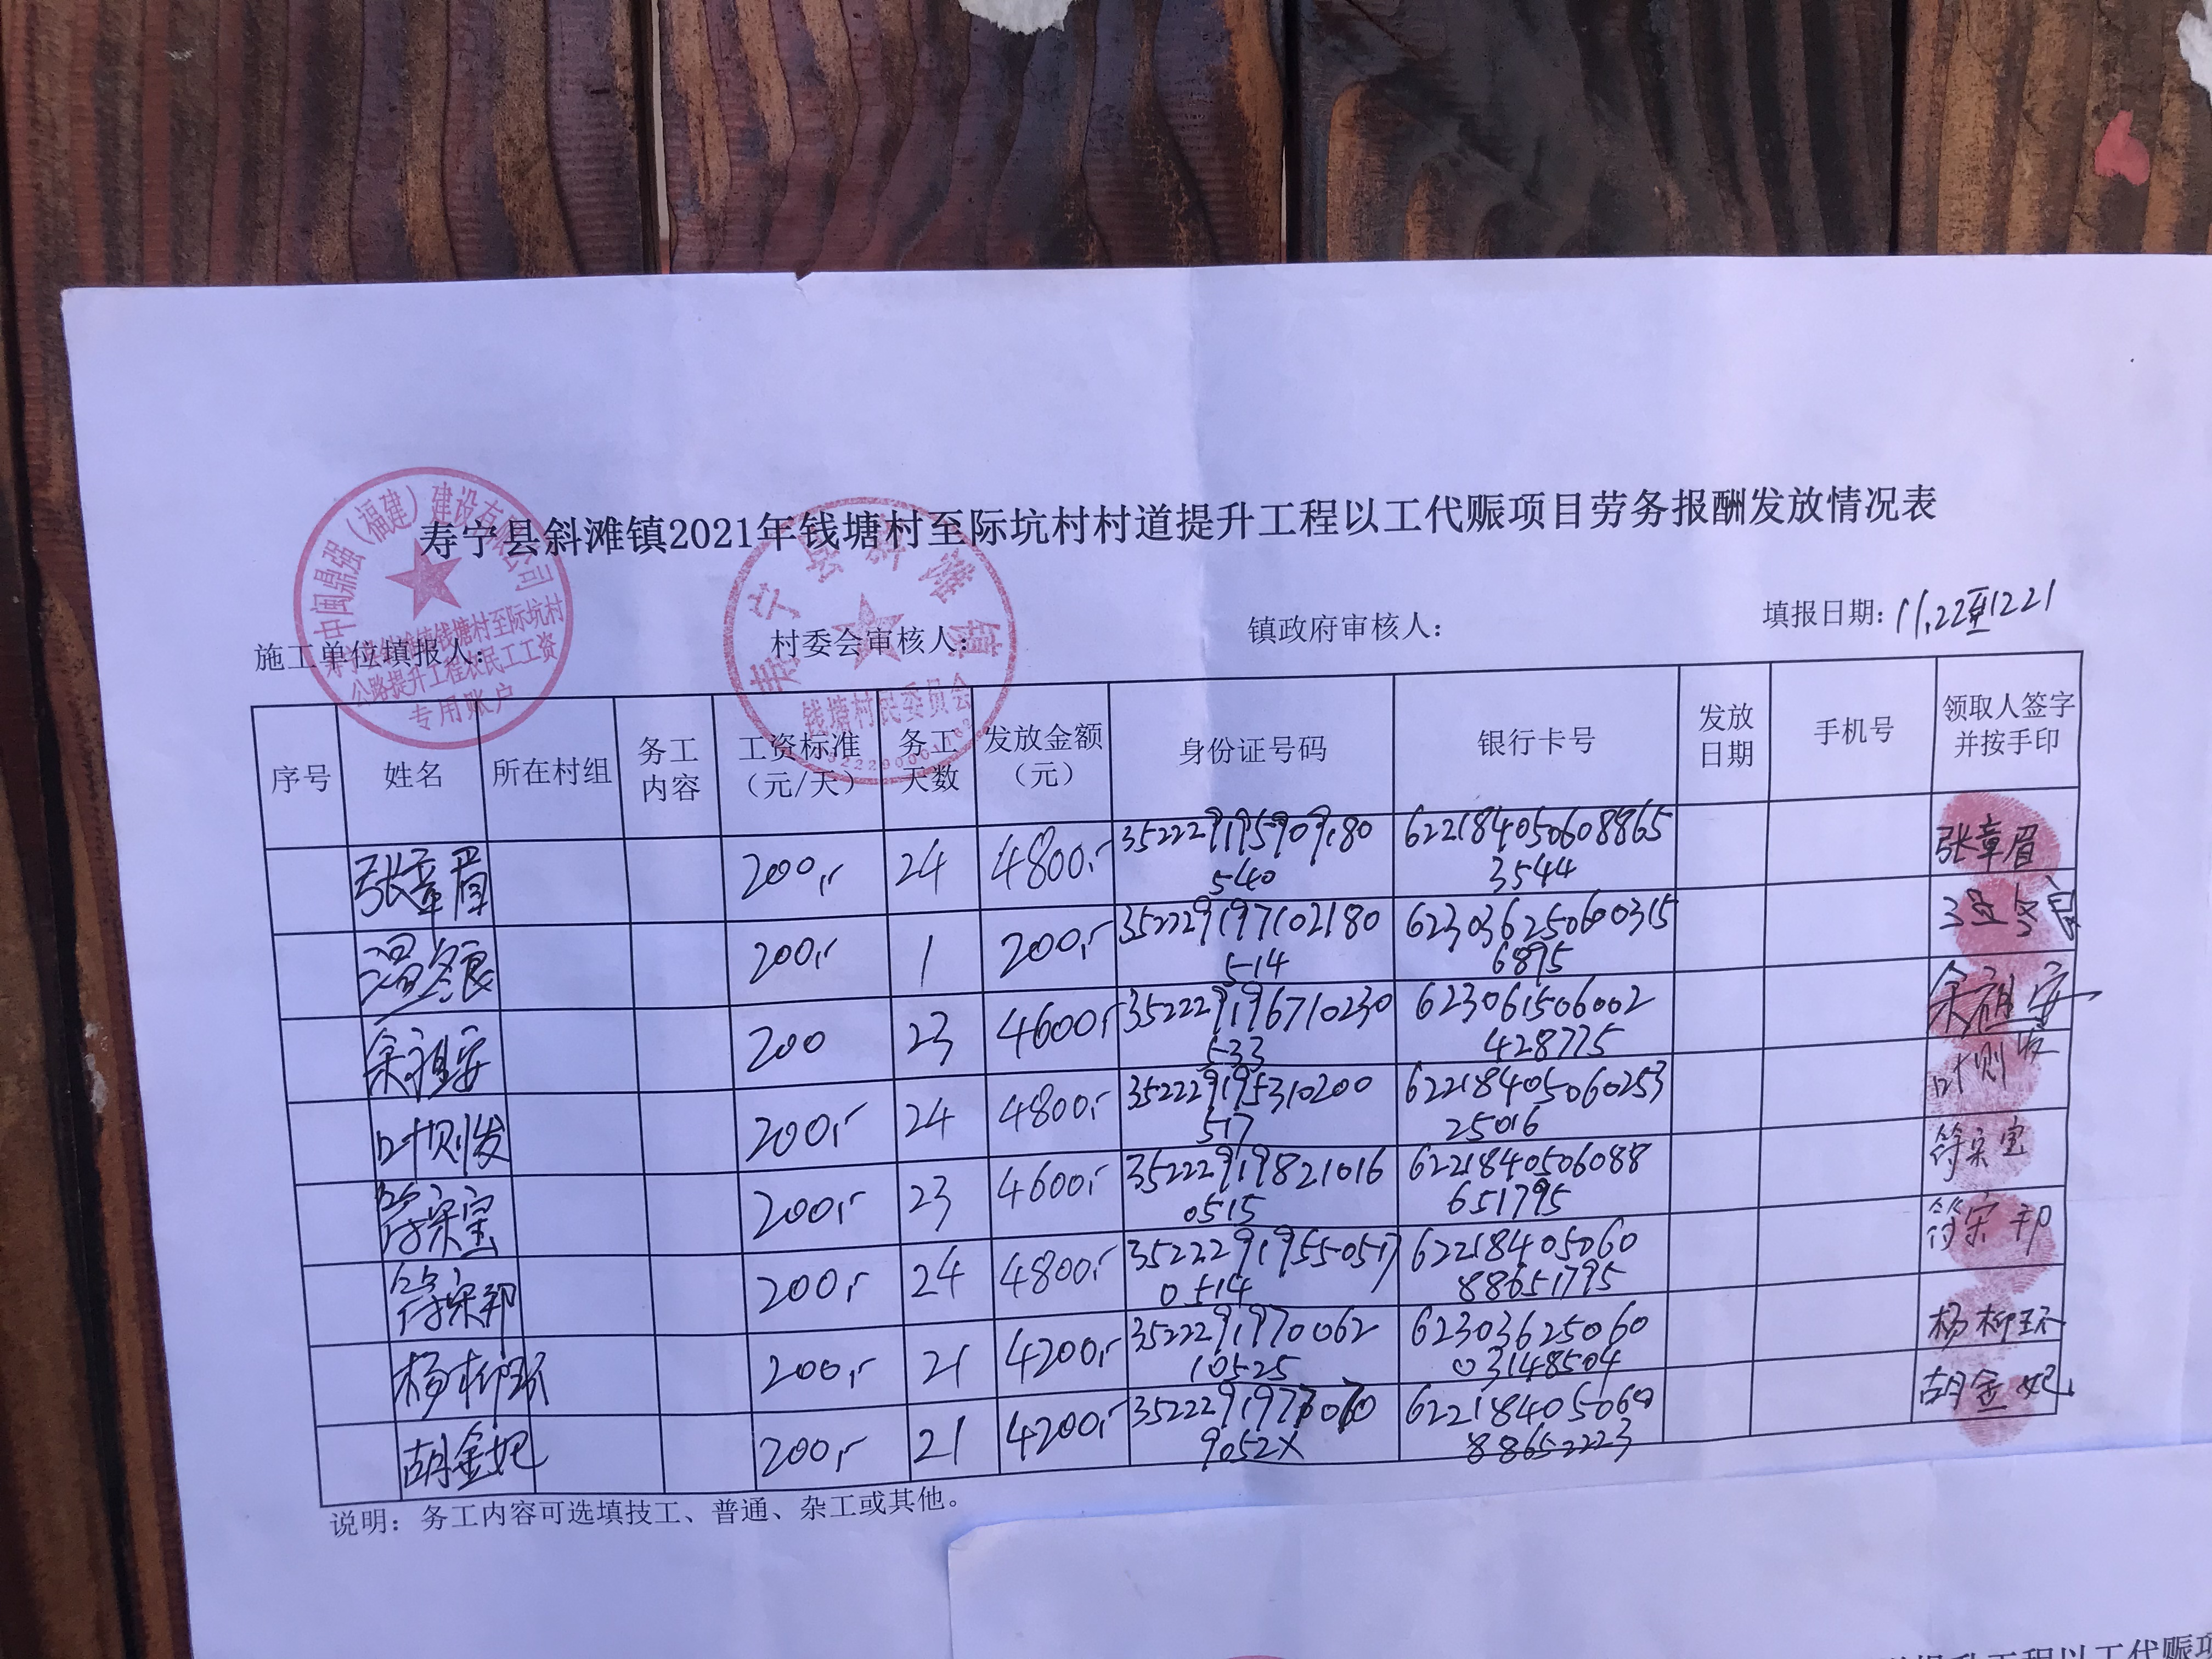 寿宁县斜滩镇2021年钱塘村至际坑村村道提升工程以工代赈项目劳务报酬发放情况表
中闽鼎强（福建）建设有限公司
寿宁县斜滩镇钱塘村至际坑村
公路提升工程农民工工资
专用账户
寿宁县斜滩镇
钱塘村民委员会
施工单位填报人：
村委会审核人：
镇政府审核人：
填报日期：11.22至1221
序号 姓名 所在村组 务工内容 工资标准（元/天） 务工天数 发放金额（元） 身份证号码 银行卡号 发放日期 手机号 领取人签字并按手印
张章眉 200 24 4800 352229195909180540 6221840506088653544 张章眉
200 1 200 352229197102180514 6230362506003156895
余祖安 200 23 4600 352229196710230533 623061506002428775 余祖安
叶则发 200 24 4800 352229195310200517 6221840506025325016 叶则发
符宗宝 200 23 4600 352229198210160515 6221840506088651795 符宗宝
符宗邦 200 24 4800 6221840506088651795 符宗邦
杨柳环 200 21 4200 352229197006210525 6230362506003148504 杨柳环
胡金妃 200 21 4200 6221840506088652223 胡金妃
说明：务工内容可选填技工、普通、杂工或其他。
提升工程以工代赈项